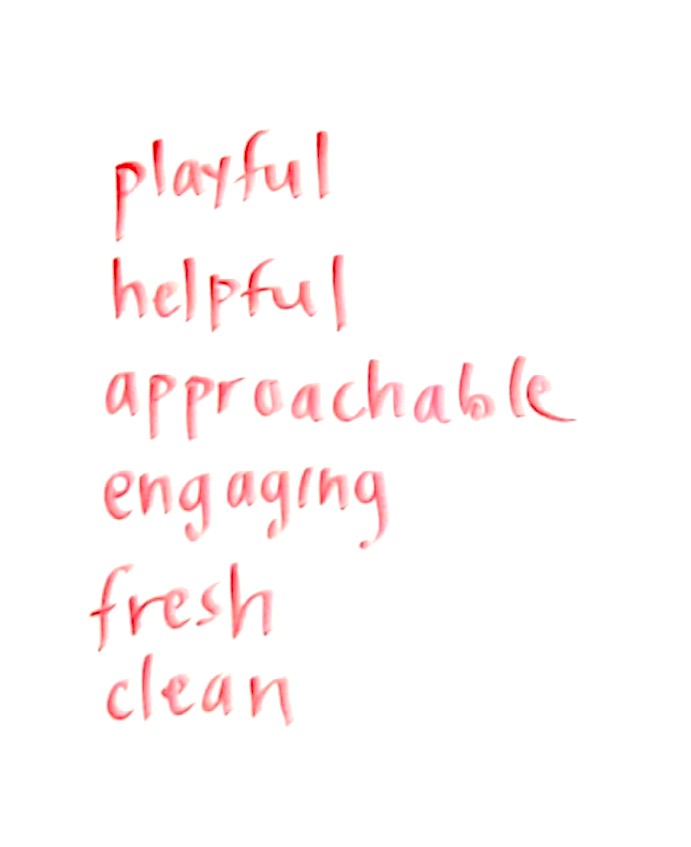 playful
helpful
approachable
engaging
fresh
clean